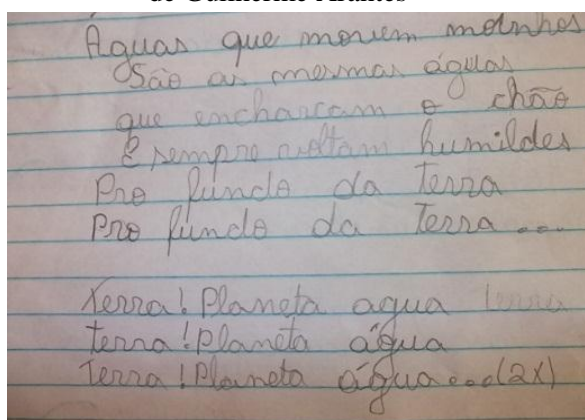 de Guilherme Arantes
Águas que movem moinhos
São as mesmas águas
que encharcam o chão
E sempre voltam humildes
Pro fundo da terra
Pro fundo da Terra ...
Terra! Planeta agua terra
terra! Planeta água
Terra! Planeta água...(2x)